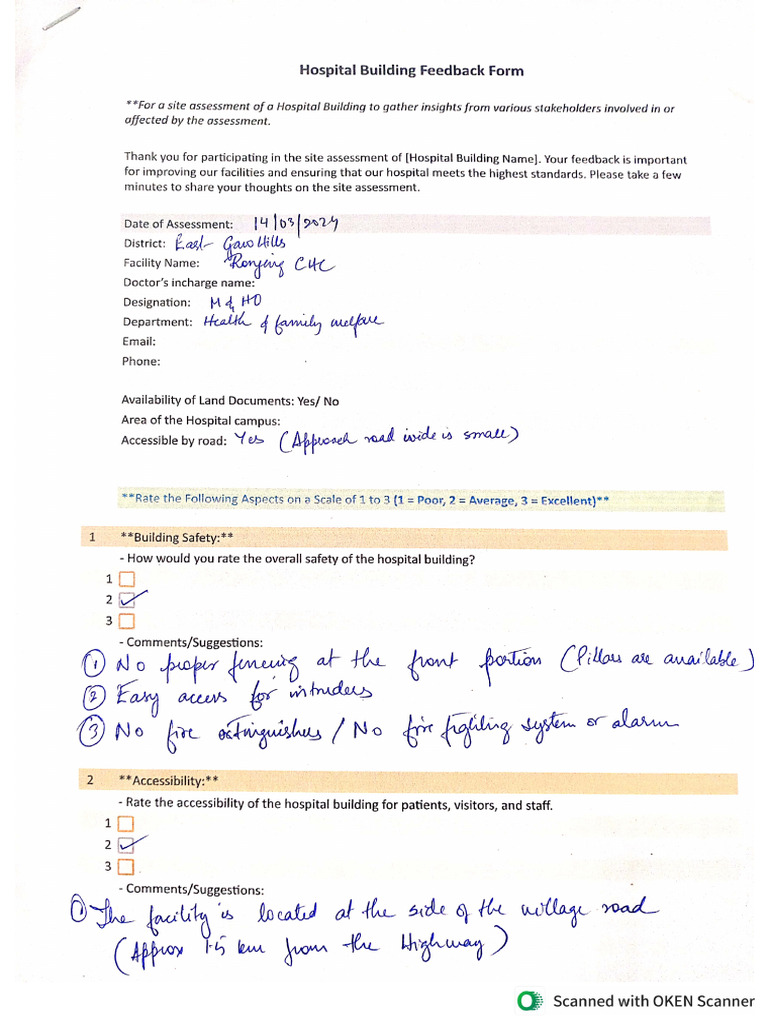 Hospital Building Feedback Form
**For a site assessment of a Hospital Building to gather insights from various stakeholders involved in or
affected by the assessment.
Thank you for participating in the site assessment of [Hospital Building Name]. Your feedback is important
for improving our facilities and ensuring that our hospital meets the highest standards. Please take a few
minutes to share your thoughts on the site assessment.
Date of Assessment: 14/03/2024
District: East Garo Hills
Facility Name: Rongjeng CHC
Doctor's incharge name:
Designation: M & HO
Department: Health & family welfare
Email:
Phone:
Availability of Land Documents: Yes/ No
Area of the Hospital campus:
Accessible by road: Yes (Approach road wide is small)
**Rate the Following Aspects on a Scale of 1 to 3 (1 = Poor, 2 = Average, 3 = Excellent)**
1 **Building Safety:**
- How would you rate the overall safety of the hospital building?
1
2 ✓
3
- Comments/Suggestions:
① No proper fencing at the front portion (Pillars are available)
② Easy access for intruders
③ No fire extinguishers / No fire fighting system or alarm
2 **Accessibility:**
- Rate the accessibility of the hospital building for patients, visitors, and staff.
1
2 ✓
3
- Comments/Suggestions:
① The facility is located at the side of the village road
(Approx 1.5 km from the Highway)
Scanned with OKEN Scanner